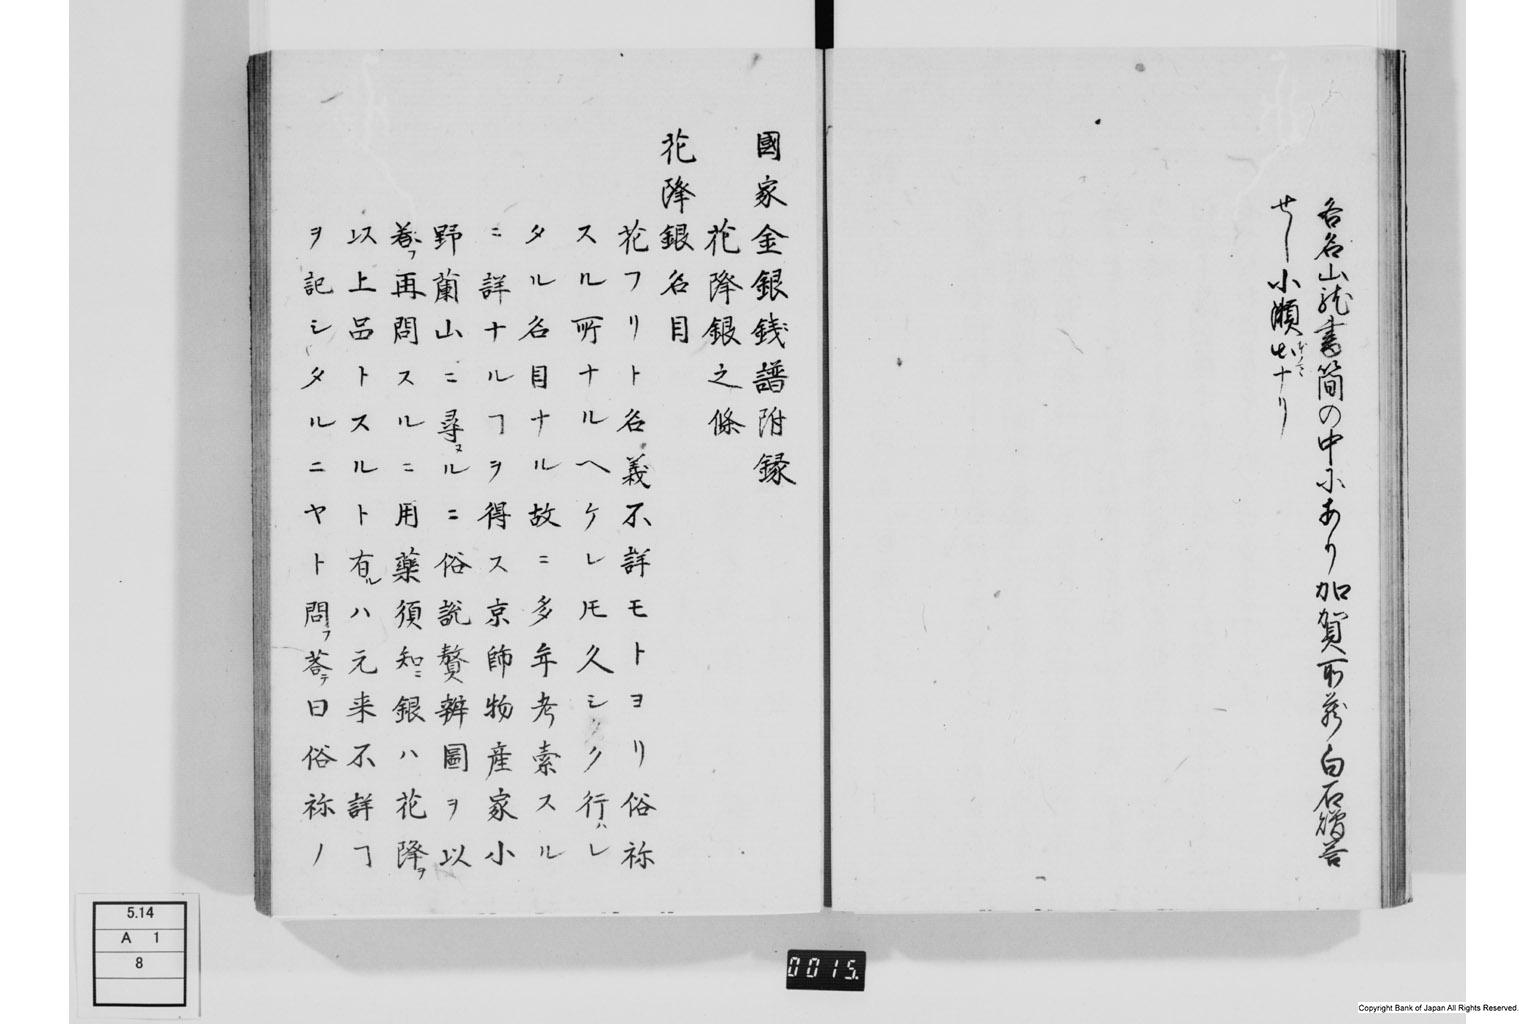 各名山蔵書簡の中にあり加賀所蔵白石贈答
せし小瀬
國家金銀銭譜附録
花降銀之條
花降銀名目
花フリト名義不詳モトヨリ俗称
スル所ナルヘケレ𪜈久シク行ハレ
タル名目ナル故ニ多年考索スル
ニ詳ナルヿヲ得ス京師物産家小
野蘭山ニ尋ヌルニ俗説贅辨圖ヲ以
答フ再問スルニ用藥須知ニ銀ハ花降ヲ
以上品トスルト有ルハ元来不詳ヿ
ヲ記シタルニヤト問フ答テ曰俗称ノ
5.14
A 1
8
0015.
Copyright Bank of Japan All Rights Reserved.